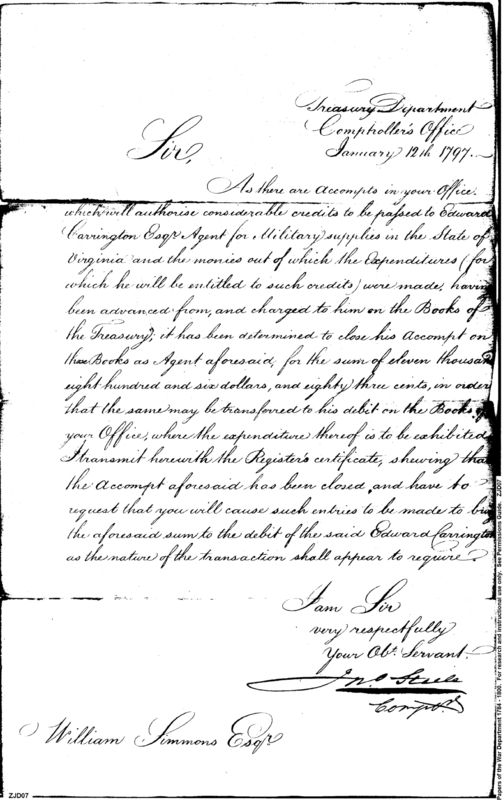 Treasury Department
Comptroller's Office
January 12th 1797.
Sir,
As there are Accompts in your Office,
which will authorise considerable credits to be passed to Edward
Carrington Esqr Agent for Military supplies in the State of
Virginia and the monies out of which the Expenditures (for
which he will be entitled to such credits) were made, having
been advanced from, and charged to him on the Books of
the Treasury; it has been determined to close his Accompt on
those Books as Agent aforesaid, for the sum of eleven thousand
eight hundred and six dollars, and eighty three cents, in order
that the same may be transferred to his debit on the Books of
your Office, where the expenditure thereof is to be exhibited
I transmit herewith the Register's certificate, shewing that
the Accompt aforesaid has been closed, and have to
request that you will cause such entries to be made to bring
the aforesaid sum to the debit of the said Edward Carrington
as the nature of the transaction shall appear to require.
I am Sir
very respectfully
Your Obt. Servant.
Jno. Steele
Compr.
William Simmons Esqr.
ZJD07
Papers of the War Department 1784 - 1800. For research and instructional use only. See Permissions Guide. ZJD07